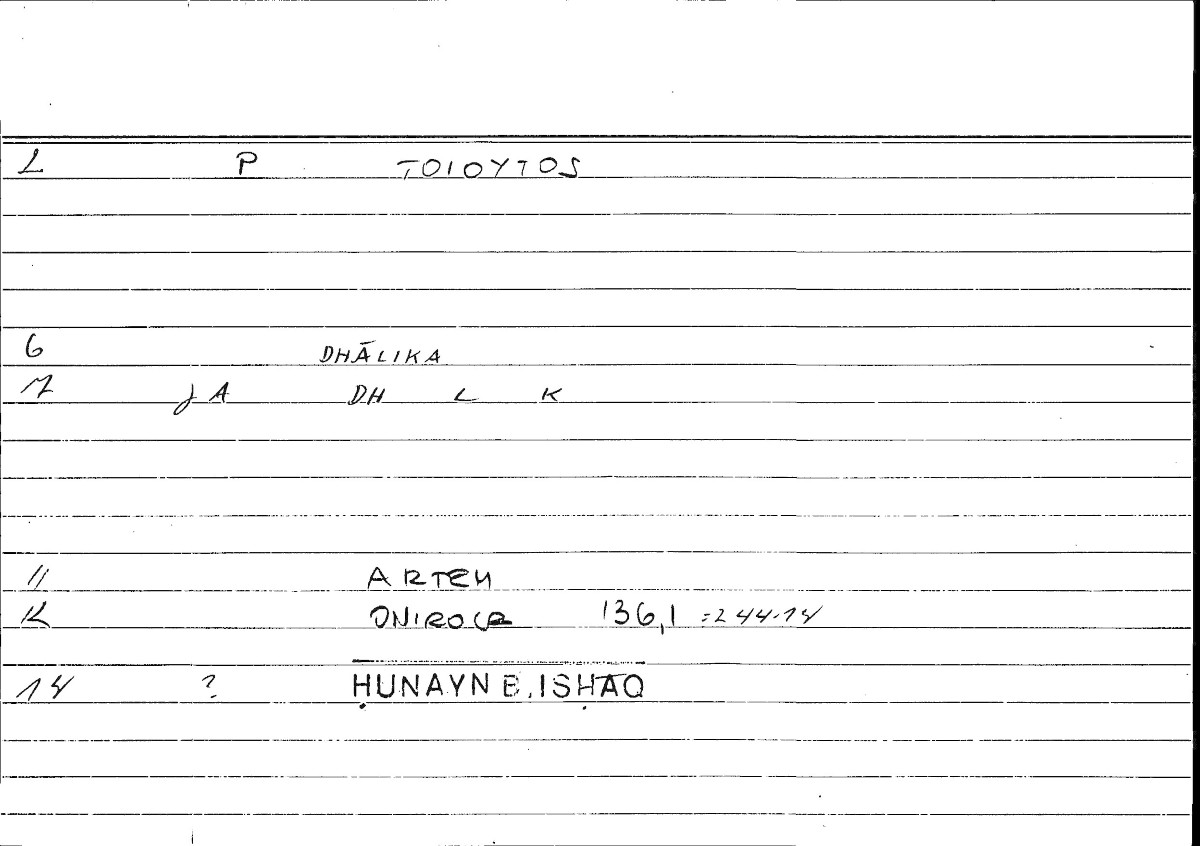 2 P TOIOYTOS
6 DHĀLIKA
7 JA DH L K
11 ARTEM
12 ONIROCR 136,1 =244.14
14 ? ḤUNAYN B. ISḤĀQ